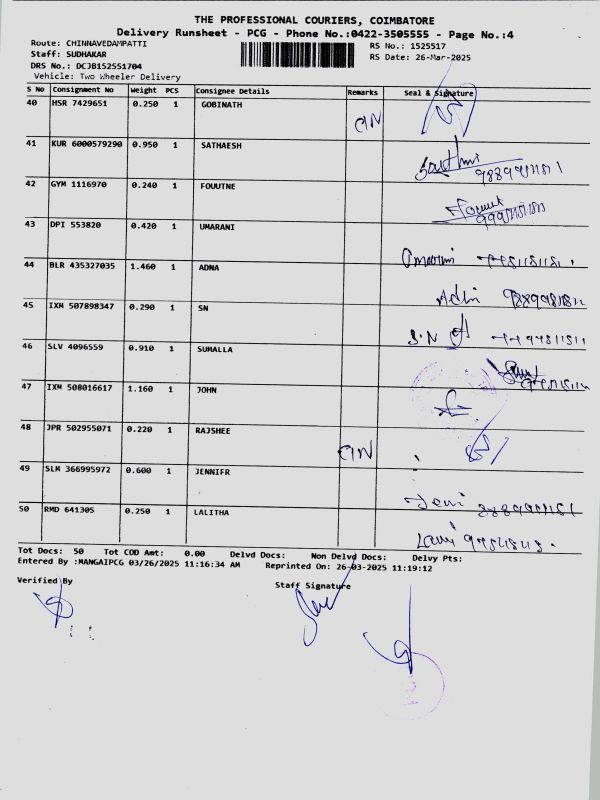 THE PROFESSIONAL COURIERS, COIMBATORE
Delivery Runsheet - PCG - Phone No.:0422-3505555 - Page No.:4
Route: CHINNAVEDAMPATTI
Staff: SUDHAKAR
DRS No.: DCJB152551704
Vehicle: Two Wheeler Delivery
RS No.: 1525517
RS Date: 26-Mar-2025
S No Consignment No Weight PCS Consignee Details Remarks Seal & Signature
40 HSR 7429651 0.250 1 GOBINATH
41 KUR 6000579290 0.950 1 SATHAESH
42 GYM 1116970 0.240 1 FOUUTNE
43 DPI 553820 0.420 1 UMARANI
44 BLR 435327035 1.460 1 ADNA
45 IXM 507898347 0.290 1 SN
S.N
46 SLV 4096559 0.910 1 SUMALLA
47 IXM 508016617 1.160 1 JOHN
48 JPR 502955071 0.220 1 RAJSHEE
49 SLM 366995972 0.600 1 JENNIFR
50 RMD 641305 0.250 1 LALITHA
Tot Docs: 50 Tot COD Amt: 0.00 Delvd Docs: Non Delvd Docs: Delvy Pts:
Entered By :MANGAIPCG 03/26/2025 11:16:34 AM Reprinted On: 26-03-2025 11:19:12
Verified By
Staff Signature